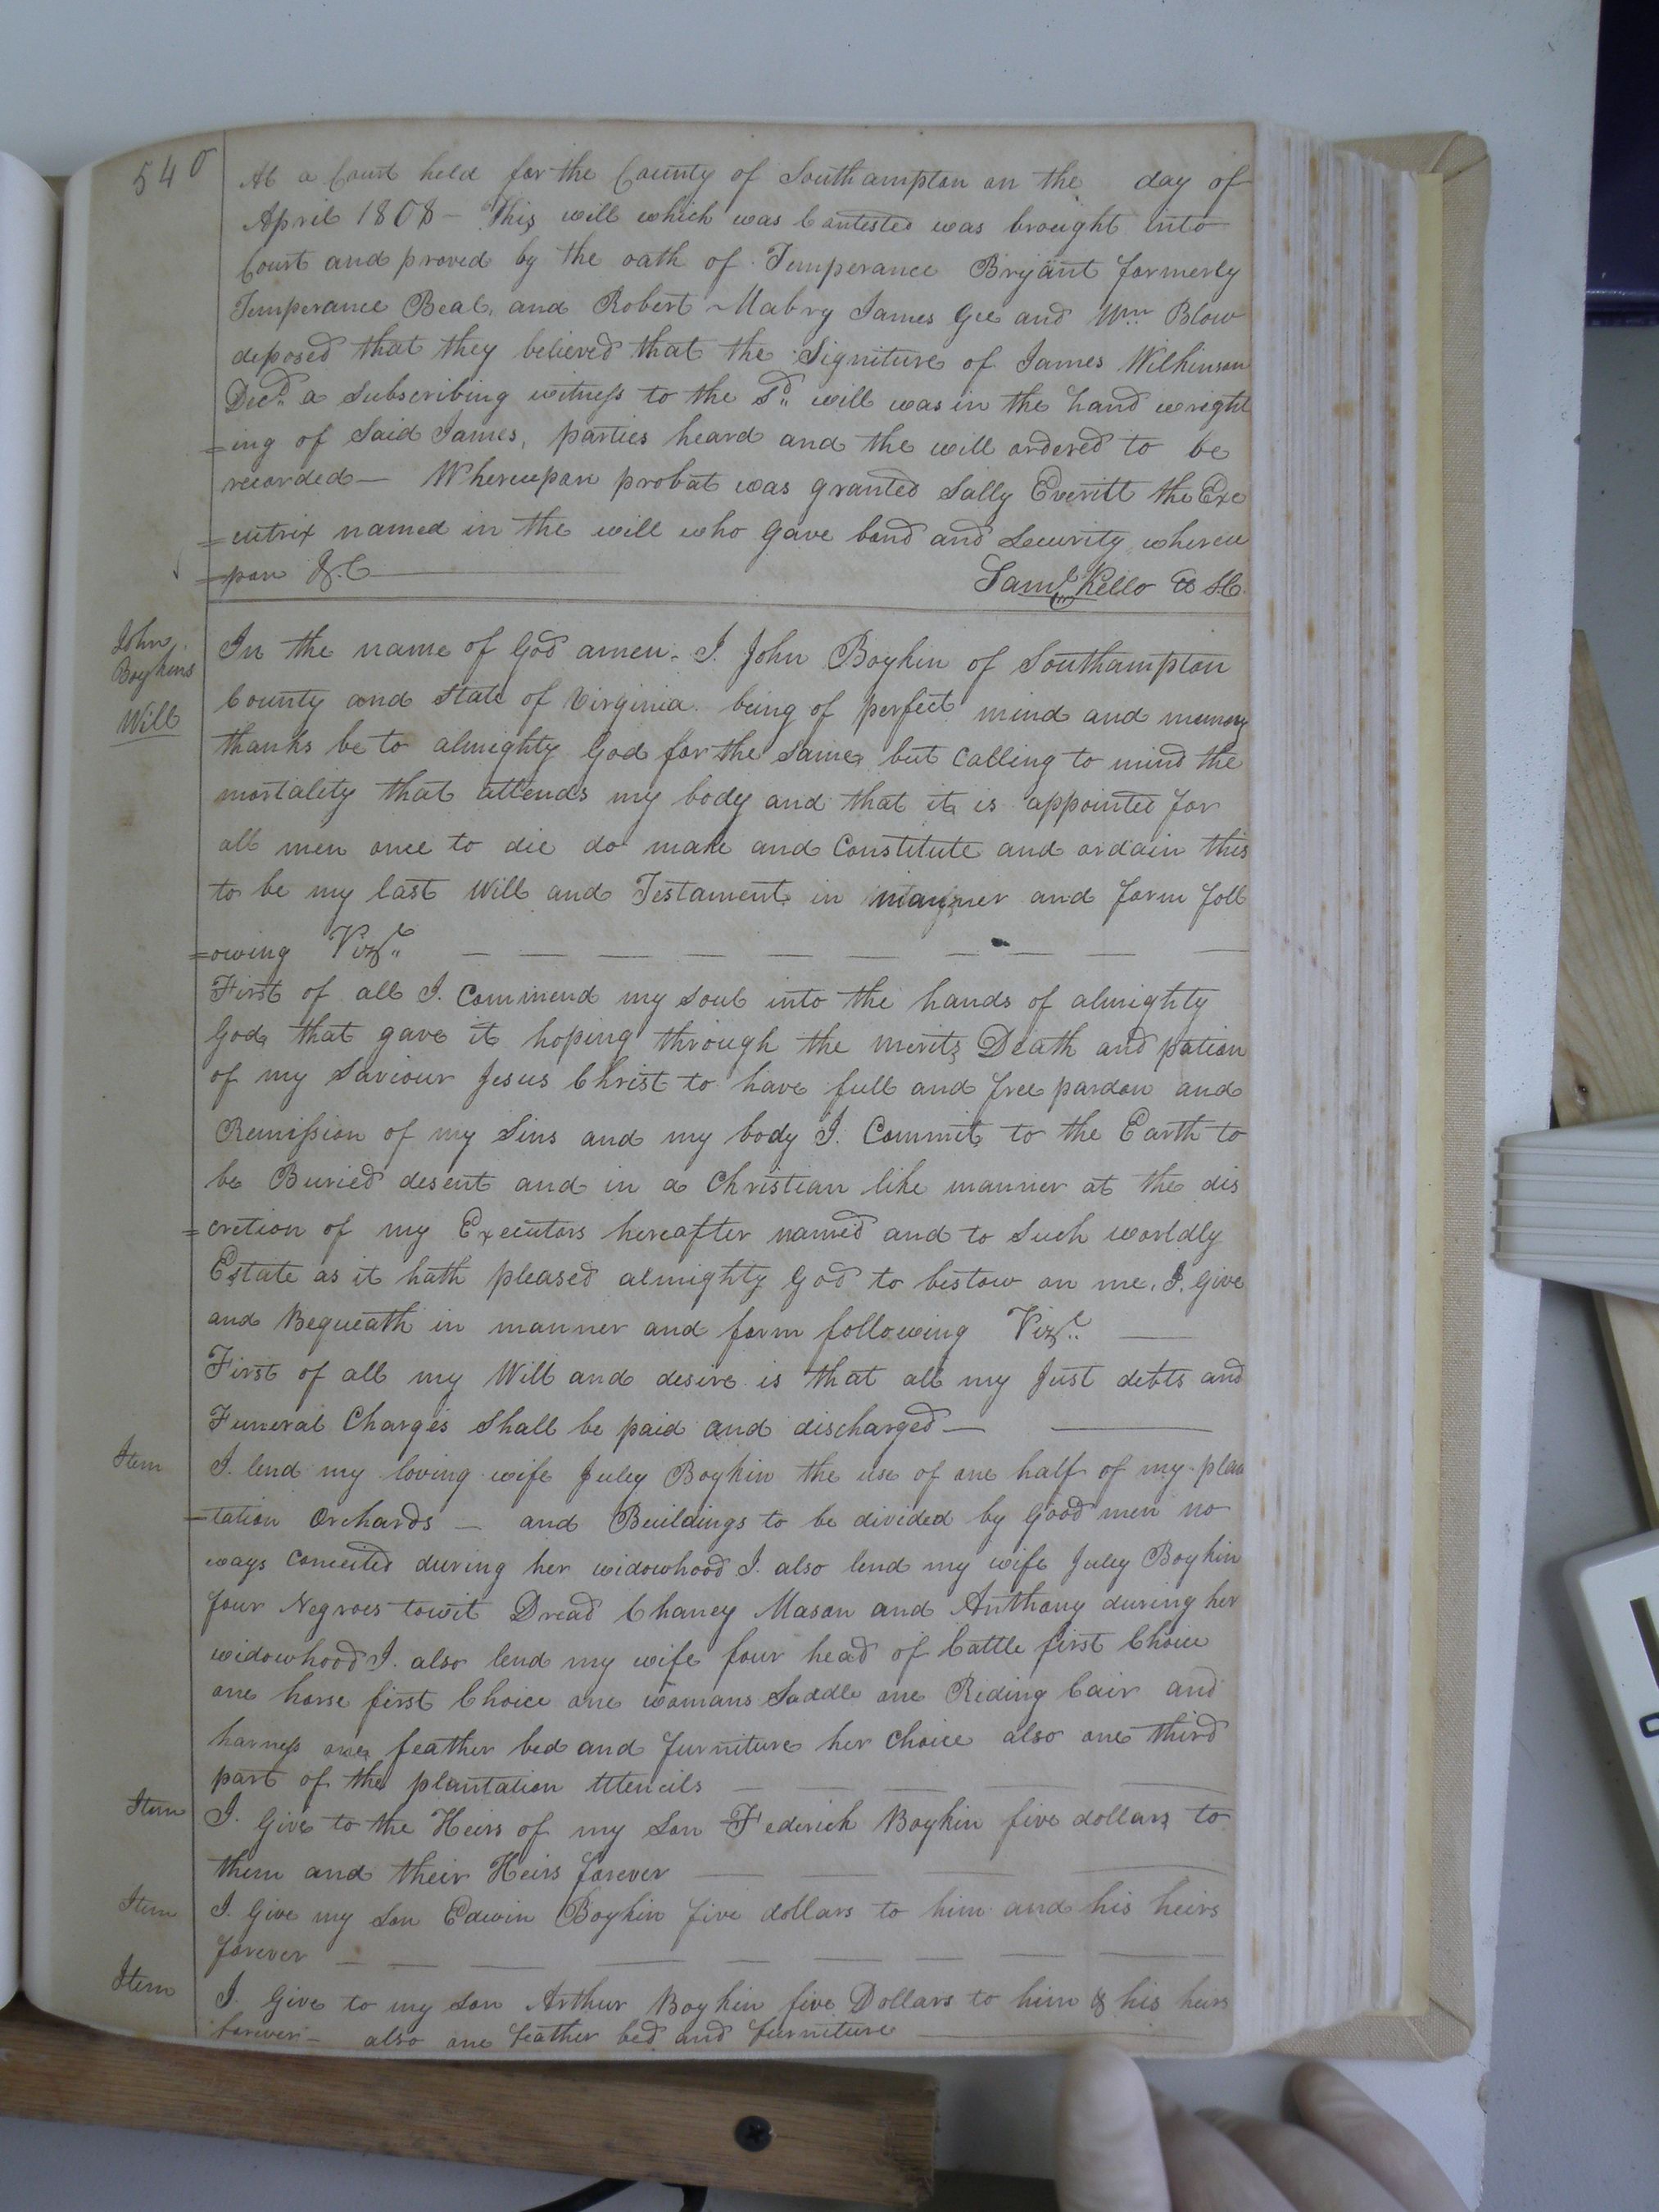 540
At a Court held for the County of Southampton on the day of
April 1808 - This will which was Contested was brought into
Court and proved by the oath of Temperance Bryant formerly
Temperance Beal, and Robert Mabry James Gee and Wm Blow
deposed that they believed that the Signiture of James Wilkinson
Decd. a subscribing witness to the Sd. will was in the hand wright
=ing of Said James, parties heard and the will ordered to be
recorded - Whereupon probat was granted Sally Everitt the Exe
=cutrix named in the will who gave bond and Security whereu
=pon &.C
Saml Kello C S.C.
John
Boykins
Will
In the name of God amen. I. John Boykin of Southampton
County and State of Virginia. being of perfect mind and memory
thanks be to almighty God for the same but calling to mind the
mortality that attends my body and that it is appointed for
all men once to die do make and Constitute and ordain this
to be my last Will and Testament in manner and form foll
=owing Vizt.
First of all I. Commend my Soul into the hands of almighty
God that gave it hoping through the merits Death and pation
of my Saviour Jesus Christ to have full and free pardon and
Remission of my Sins and my body I. Commit to the Earth to
be Buried desent and in a Christian like manner at the dis
=cretion of my Executors hereafter named and to Such worldly
Estate as it hath pleased almighty God to bestow on me. I. give
and Bequeath in manner and form following Vizt.
First of all my Will and desire is that all my Just debts and
Funeral Charges Shall be paid and discharged -
Item I. lend my loving wife Juley Boykin the use of one half of my plan
=tation Orchards - and Beuildings to be divided by Good men no
ways conceited during her widowhood I. also lend my wife Juley Boykin
four Negroes towit Dread Chaney Mason and Anthony during her
widowhood I. also lend my wife four head of Cattle first Choice
one horse first Choice one womans Saddle one Riding Cair and
harness one feather bed and furniture her choice also one third
part of the plantation Utencils
Item I. Give to the Heirs of my Son Federick Boykin five dollars to
them and their Heirs forever
Item I. Give my Son Edwin Boykin five dollars to him and his heirs
forever
Item I. Give to my Son Arthur Boykin five Dollars to him & his heirs
forever - also one feather bed and furniture